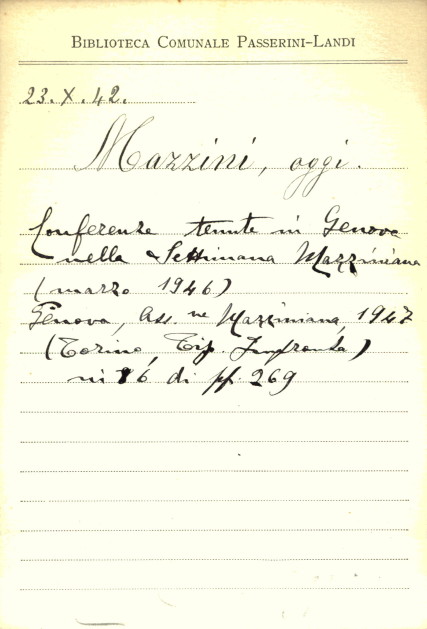 BIBLIOTECA COMUNALE PASSERINI-LANDI
23. X. 42.
Mazzini, oggi.
Conferenze tenute in Genova
nella Settimana Mazziniana
(marzo 1946)
Genova, Ass.ne Mazziniana, 1947
(Torino, Tip. Impronta)
in 16 di pp. 269